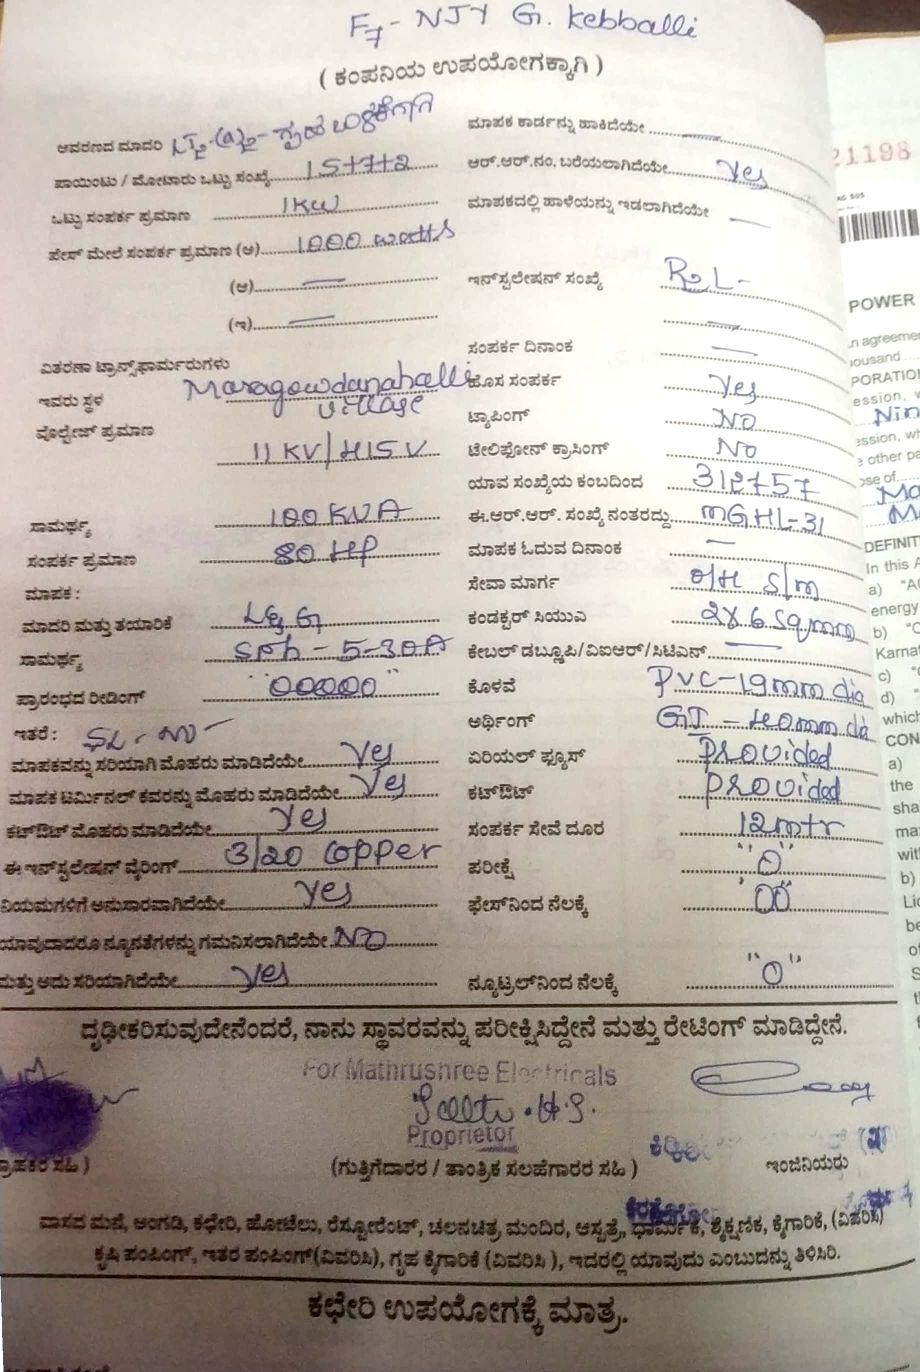 F7 - NJY G. Kebballi
( ಕಂಪನಿಯ ಉಪಯೋಗಕ್ಕಾಗಿ )
ಆವರಣದ ಮಾದರಿ LT2-(a)2- ಗೃಹ ಬಳಕೆಗಾಗಿ
ಮಾಪಕ ಕಾರ್ಡನ್ನು ಹಾಕಿದೆಯೇ —
ಪಾಯಿಂಟು / ಮೋಟಾರು ಒಟ್ಟು ಸಂಖ್ಯೆ 15+7+2
ಆರ್.ಆರ್.ನಂ. ಬರೆಯಲಾಗಿದೆಯೇ Yes
ಒಟ್ಟು ಸಂಪರ್ಕ ಪ್ರಮಾಣ 1KW
ಮಾಪಕದಲ್ಲಿ ಹಾಳೆಯನ್ನು ಇಡಲಾಗಿದೆಯೇ —
ಪೇಸ್ ಮೇಲೆ ಸಂಪರ್ಕ ಪ್ರಮಾಣ (ಅ) 1000 watts
(ಆ) —
ಇನ್‌ಸ್ಟಲೇಷನ್ ಸಂಖ್ಯೆ RRL -
(ಇ) —
—
ಸಂಪರ್ಕ ದಿನಾಂಕ —
ವಿತರಣಾ ಟ್ರಾನ್ಸ್‌ಫಾರ್ಮರುಗಳು
ಇವರು ಸ್ಥಳ Maragowdanahalli Village
ಹೊಸ ಸಂಪರ್ಕ Yes
ಟ್ಯಾಪಿಂಗ್ NO
ವೊಲ್ಟೇಜ್ ಪ್ರಮಾಣ 11 KV/415 V
ಟೇಲಿಫೋನ್ ಕ್ರಾಸಿಂಗ್ NO
ಯಾವ ಸಂಖ್ಯೆಯ ಕಂಬದಿಂದ 312757
ಸಾಮರ್ಥ್ಯ 100 KVA
ಈ.ಆರ್.ಆರ್. ಸಂಖ್ಯೆ ನಂತರದ್ದು MGHL-31
ಸಂಪರ್ಕ ಪ್ರಮಾಣ 80 HP
ಮಾಪಕ ಓದುವ ದಿನಾಂಕ —
ಮಾಪಕ :
ಸೇವಾ ಮಾರ್ಗ O/H S/m
ಮಾದರಿ ಮತ್ತು ತಯಾರಿಕೆ L&G
ಕಂಡಕ್ಟರ್ ಸಿಯುಎ 2X6 Sqmm
ಸಾಮರ್ಥ್ಯ SPh - 5-30A
ಕೇಬಲ್ ಡಬ್ಲೂಪಿ/ವಿಐಆರ್/ಸಿಟಿಎಸ್ —
ಪ್ರಾರಂಭದ ರೀಡಿಂಗ್ "00000"
ಕೊಳವೆ PVC-19mm dia
ಇತರೆ : SL - NO -
ಅರ್ಥಿಂಗ್ GI - 40mm dia
ಮಾಪಕವನ್ನು ಸರಿಯಾಗಿ ಮೊಹರು ಮಾಡಿದೆಯೇ Yes
ಏರಿಯಲ್ ಫ್ಯೂಸ್ Provided
ಮಾಪಕ ಟರ್ಮಿನಲ್ ಕವರನ್ನು ಮೊಹರು ಮಾಡಿದೆಯೇ Yes
ಕಟ್‌ಔಟ್ Provided
ಕಟ್‌ಔಟ್ ಮೊಹರು ಮಾಡಿದೆಯೇ Yes
ಸಂಪರ್ಕ ಸೇವೆ ದೂರ 12mtr
ಈ ಇನ್‌ಸ್ಟಲೇಷನ್ ವೈರಿಂಗ್ 3/20 Copper
ಪರೀಕ್ಷೆ "0"
ನಿಯಮಗಳಿಗೆ ಅನುಸಾರವಾಗಿದೆಯೇ Yes
ಫೇಸ್‌ನಿಂದ ನೆಲಕ್ಕೆ "00"
ಯಾವುದಾದರೂ ನ್ಯೂನತೆಗಳನ್ನು ಗಮನಿಸಲಾಗಿದೆಯೇ NO
ಮತ್ತು ಅದು ಸರಿಯಾಗಿದೆಯೇ Yes
ನ್ಯೂಟ್ರಲ್‌ನಿಂದ ನೆಲಕ್ಕೆ "0"
ದೃಢೀಕರಿಸುವುದೇನೆಂದರೆ, ನಾನು ಸ್ಥಾವರವನ್ನು ಪರೀಕ್ಷಿಸಿದ್ದೇನೆ ಮತ್ತು ರೇಟಿಂಗ್ ಮಾಡಿದ್ದೇನೆ.
For Mathrushree Electricals
Proprietor
ಸಹಿ )
(ಗುತ್ತಿಗೆದಾರರ / ತಾಂತ್ರಿಕ ಸಲಹೆಗಾರರ ಸಹಿ )
ಇಂಜಿನಿಯರು
ವಾಸದ ಮನೆ, ಅಂಗಡಿ, ಕಛೇರಿ, ಹೋಟೆಲು, ರೆಸ್ಟೋರೆಂಟ್, ಚಲನಚಿತ್ರ ಮಂದಿರ, ಆಸ್ಪತ್ರೆ, ಧಾರ್ಮಿಕ, ಶೈಕ್ಷಣಿಕ, ಕೈಗಾರಿಕೆ, (ವಿವರಿಸಿ)
ಕೃಷಿ ಪಂಪಿಂಗ್, ಇತರ ಪಂಪಿಂಗ್(ವಿವರಿಸಿ), ಗೃಹ ಕೈಗಾರಿಕೆ (ವಿವರಿಸಿ ), ಇದರಲ್ಲಿ ಯಾವುದು ಎಂಬುದನ್ನು ತಿಳಿಸಿರಿ.
ಕಛೇರಿ ಉಪಯೋಗಕ್ಕೆ ಮಾತ್ರ.
21198
POWER
DEFINIT
In this A
a) "A
energy
b) "C
Karnat
c)
d)
which
CON
a)
the
sha
wit
b)